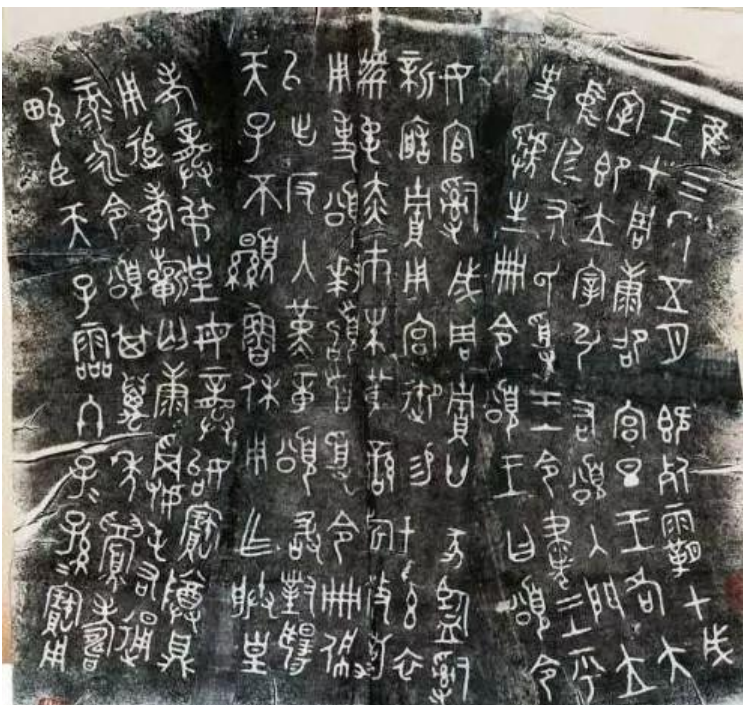 隹三年五月既死霸甲戌
王才周康卲宮旦王各大
室即立宰引右頌入門立
中廷尹氏受王令書王乎
史虢生冊令頌王曰頌令
女官𤔲成周貯廿家監𤔲
新造貯用宮御易女玄衣
黹屯赤巿朱黃鑾旂攸勒
用事頌拜𩒨首受令冊佩
以出反入堇章頌敢對揚
天子不顯魯休用乍朕皇
考龏弔皇母龏始寶尊鼎
用追孝祈匄康𩛥屯右通
彔永令頌其萬年眉壽
畯臣天子霝冬子=孫=寶用